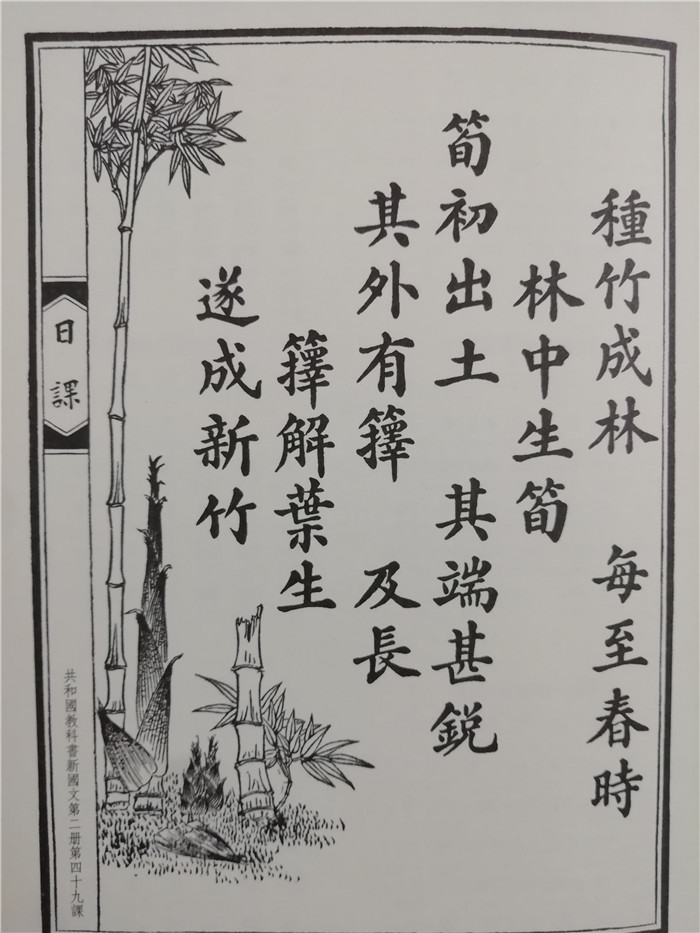 種竹成林　每至春時
林中生筍
筍初出土　其端甚鋭
其外有籜　及長
籜解葉生
遂成新竹
日課
共和國教科書新國文第二册第四十九課